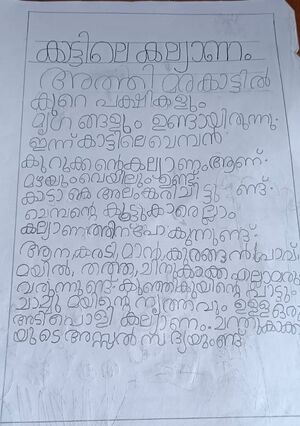 കാട്ടിലെ കല്യാണം
അത്തി മരകാട്ടിൽ
കുറെ പക്ഷികളും
മൃഗ ങ്ങളും ഉണ്ടായിരുന്നു.
ഇന്ന് കാട്ടിലെ ചെമ്പൻ
കുറുക്കൻ്റെ കല്യാണം ആണ്.
മഴയും വെയിലും ഉണ്ട്
കാടാ കെ അലംകരിച്ചിട്ടു ണ്ട്.
ചെമ്പന്റെ കൂട്ടുകാരെല്ലാം
കല്യാണത്തിന് പോ കുന്നുണ്ട്.
ആന, കരടി, മാൻ, കുരങ്ങൻ, പ്രാവ്,
മയിൽ, തത്ത, ചിന്നുകാക്ക എല്ലാവരും
വരുന്നുണ്ട്. കുഞ്ഞികുയിൻ്റെ പാട്ടും
ചാച്ചു മയിൻ്റെ നൃത്തവും ഉള്ള ഒരു
അടിപൊളി കല്യാണം. ചിന്നുകാക്ക
യുടെ അസ്സൽ സദ്യയുംണ്ട്